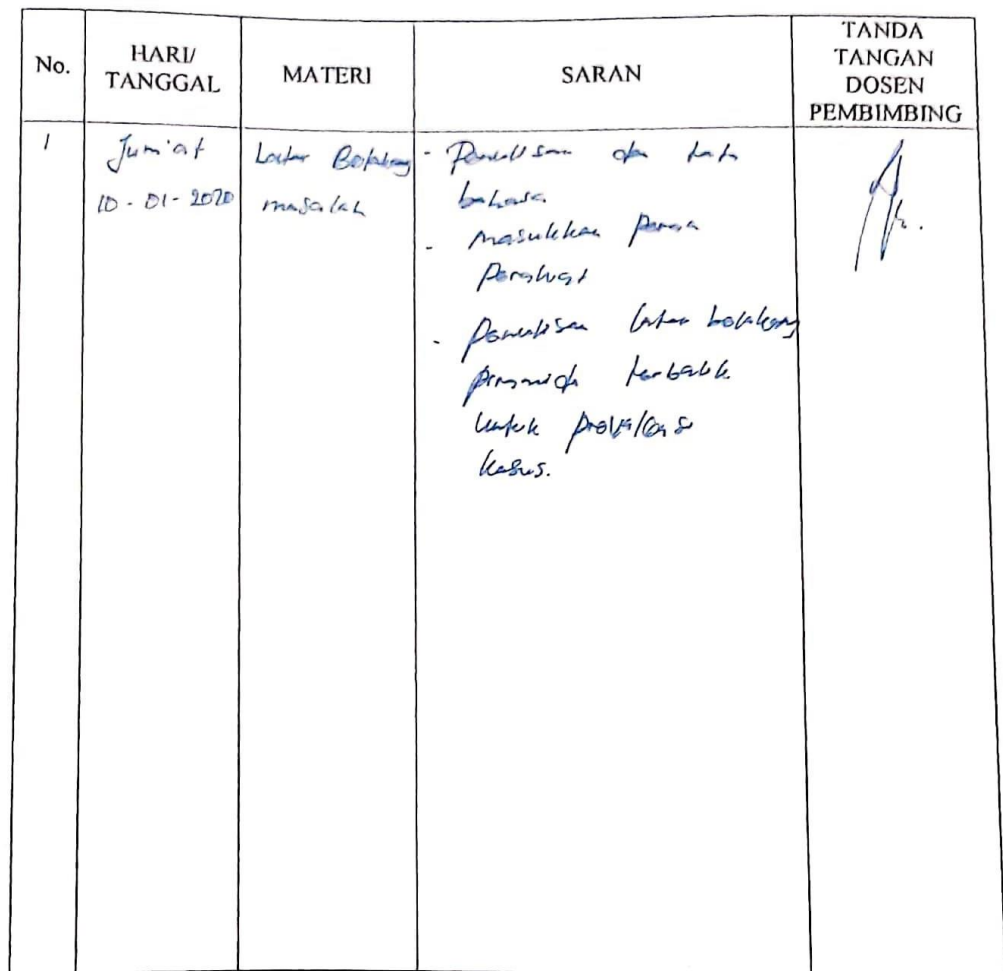 No.
HARI/
TANGGAL
MATERI
SARAN
TANDA
TANGAN
DOSEN
PEMBIMBING
1
Jum'at
10-01-2020
Latar Belakang
masalah
- Penulisan dan tata
bahasa
- Masukkan peran
perawat
- Penulisan latar belakang
piramida terbalik
untuk prevalensi
kasus.